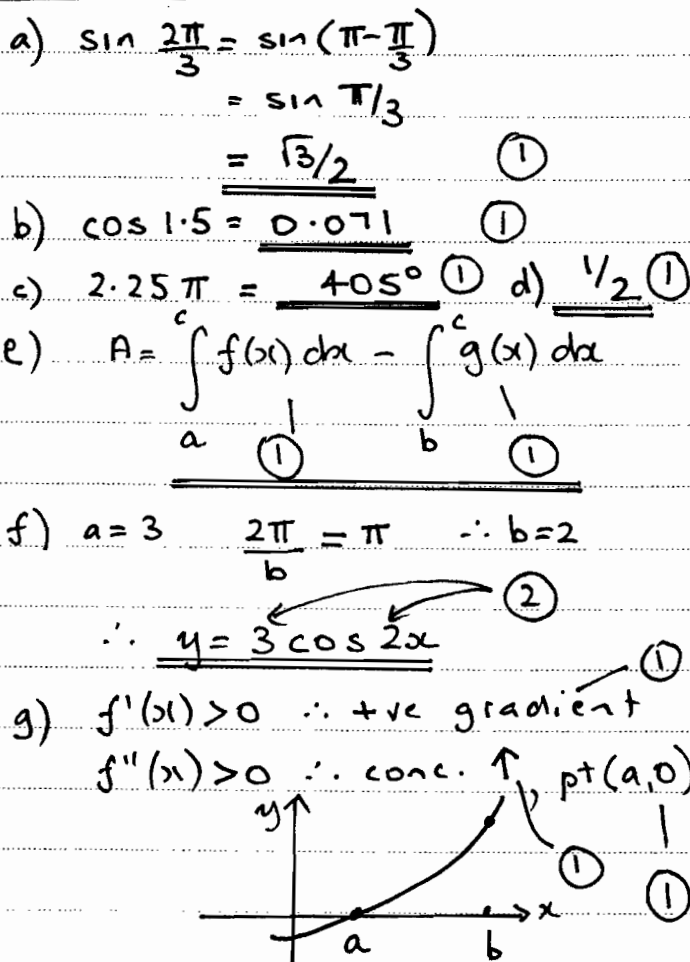 a) sin 2π/3 = sin (π - π/3)
= sin π/3
= √3/2 ①
b) cos 1.5 = 0.071 ①
c) 2.25 π = 405° ① d) 1/2 ①
e) A = ∫ₐᶜ f(x) dx - ∫ᵦᶜ g(x) dx
① ①
f) a = 3 2π/b = π ∴ b = 2
②
∴ y = 3 cos 2x
①
g) f'(x) > 0 ∴ +ve gradient
f''(x) > 0 ∴ conc. ↑, pt (a, 0)
y
① ①
x
a b